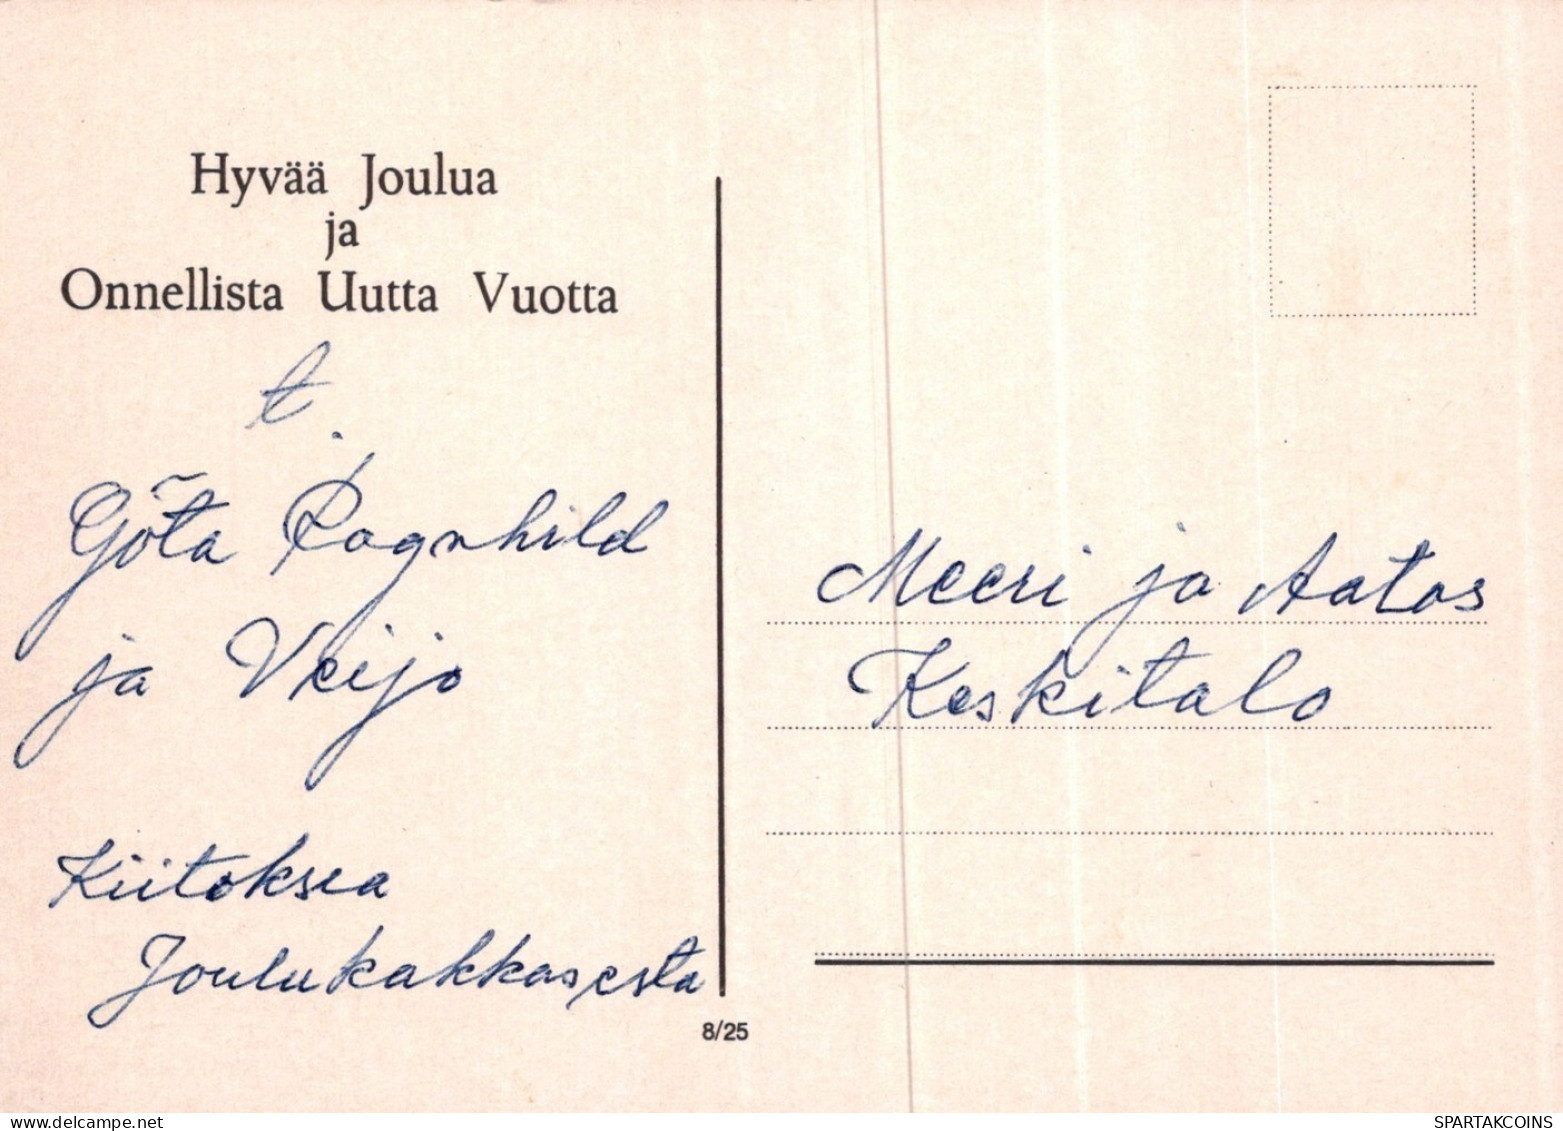 Hyvää Joulua
ja
Onnellista Uutta Vuotta
t.
Göta Ragnhild
ja Veijo
Kiitoksea
Joulukakkasesta
Meeri ja Aatos
Keskitalo
8/25
delcampe.net
SPARTAKCOINS